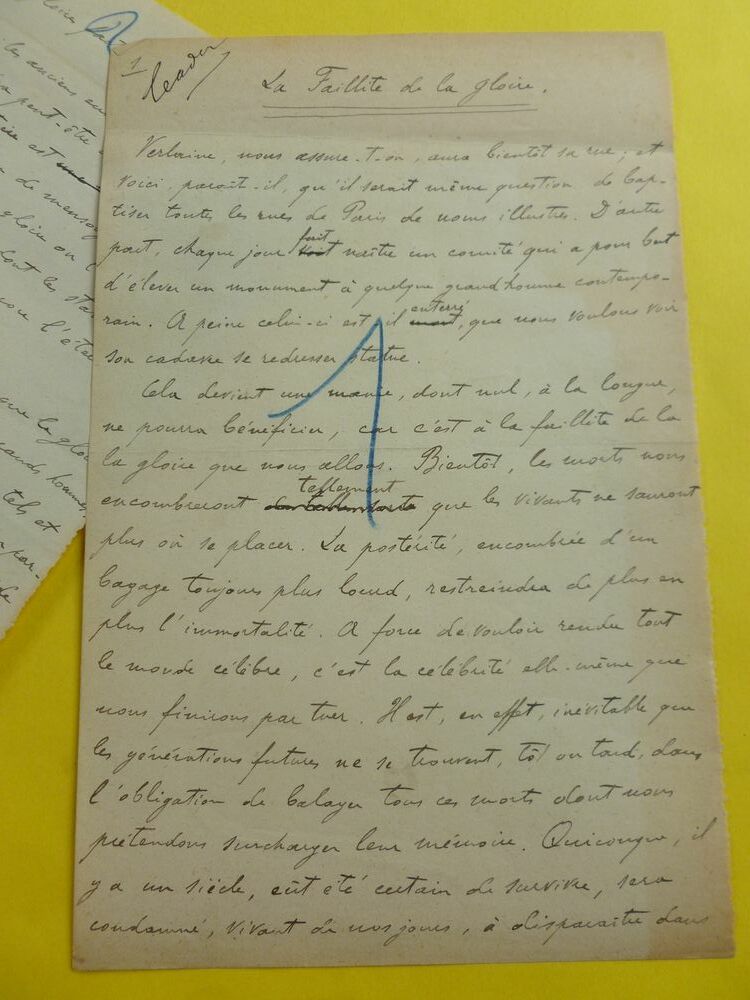 1/
leader
La Faillite de la gloire.
Verlaine, nous assure-t-on, aura bientôt sa rue ; et
voici, paraît-il, qu'il serait même question de bap-
tiser toutes les rues de Paris de noms illustres. D'autre
part, chaque jour fait naître un comité qui a pour but
d'élever un monument à quelque grand homme contempo-
rain. A peine celui-ci est-il enterré, que nous voulons voir
son cadavre se redresser statue.
Cela devient une manie, dont nul, à la longue,
ne pourra bénéficier, car c'est à la faillite de la
la gloire que nous allons. Bientôt, les morts nous
encombreront tellement que les vivants ne sauront
plus où se placer. La postérité, encombrée d'un
bagage toujours plus lourd, restreindra de plus en
plus l'immortalité. A force de vouloir rendre tout
le monde célèbre, c'est la célébrité elle-même que
nous finirons par tuer. Il est, en effet, inévitable que
les générations futures ne se trouvent, tôt ou tard, dans
l'obligation de balayer tous ces morts dont nous
prétendons surcharger leur mémoire. Quiconque, il
y a un siècle, eût été certain de survivre, sera
condamné, vivant de nos jours, à disparaître dans
les anciens
peut-être
est
de
gloire ou l
dont les sta
l'éta
que la glo
grands hommes
tels et
par-
de